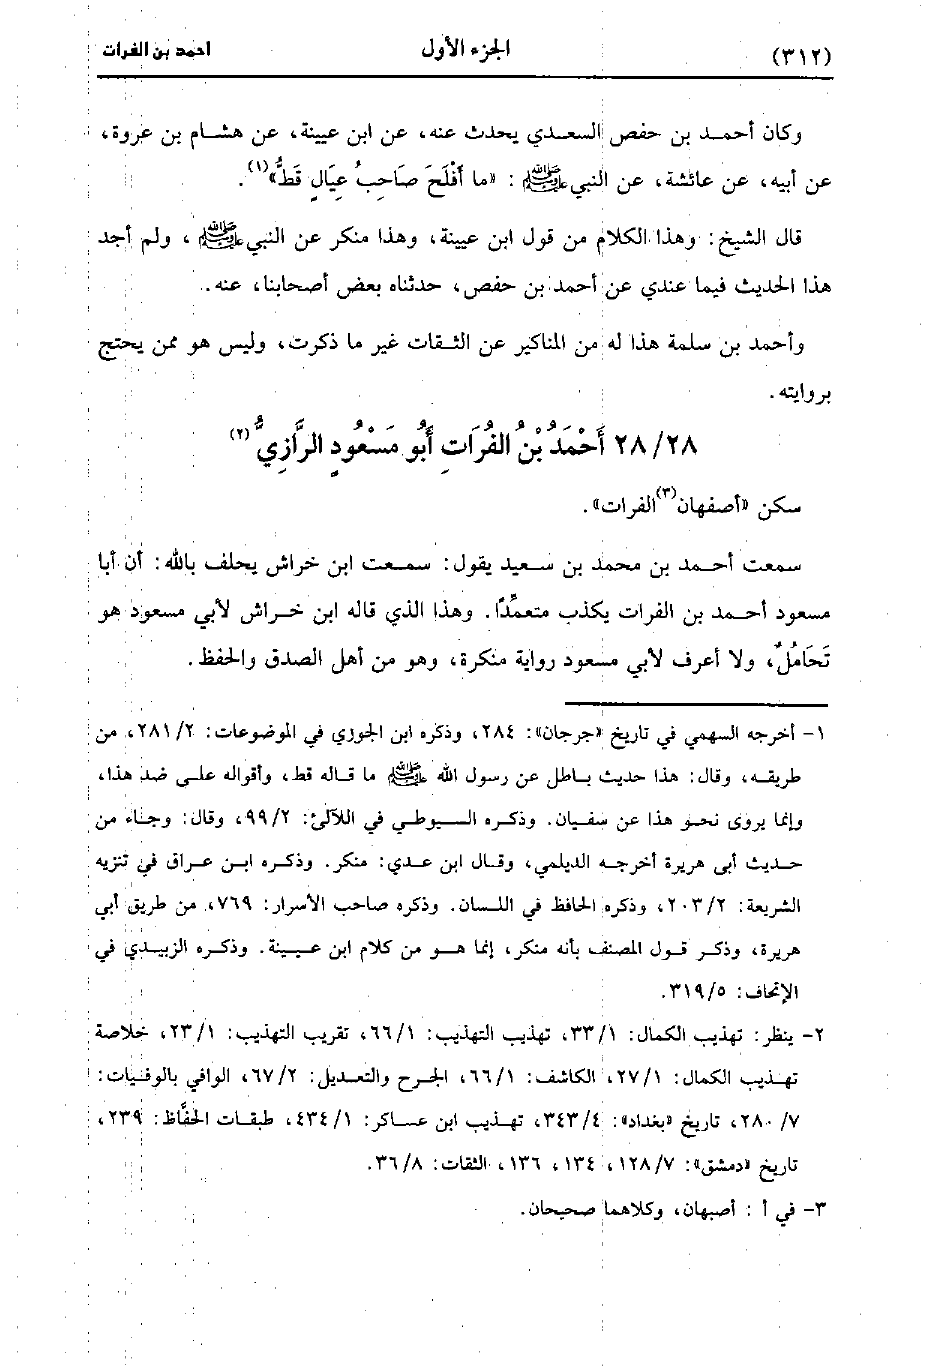 (٣١٢) الجزء الأول احمد بن الفرات
وكان أحمد بن حفص السعدي يحدث عنه، عن ابن عيينة، عن هشام بن عروة،
عن أبيه، عن عائشة، عن النبي ﷺ : «ما أَفْلَحَ صَاحِبُ عِيَالٍ قَطُّ»(١).
قال الشيخ: وهذا الكلام من قول ابن عيينة، وهذا منكر عن النبي ﷺ ، ولم أجد
هذا الحديث فيما عندي عن أحمد بن حفص، حدثناه بعض أصحابنا، عنه.
وأحمد بن سلمة هذا له من المناكير عن الثقات غير ما ذكرت، وليس هو ممن يحتج
بروايته.
٢٨/٢٨ أَحْمَدُ بْنُ الفُرَاتِ أَبُو مَسْعُودٍ الرَّازِيُّ(٢)
سكن «أصفهان(٣) الفرات».
سمعت أحمد بن محمد بن سعيد يقول: سمعت ابن خراش يحلف بالله: أن أبا
مسعود أحمد بن الفرات يكذب متعمِّدًا. وهذا الذي قاله ابن خراش لأبي مسعود هو
تَحَامُلٌ، ولا أعرف لأبي مسعود رواية منكرة، وهو من أهل الصدق والحفظ.
١- أخرجه السهمي في تاريخ «جرجان»: ٢٨٤، وذكره ابن الجوزي في الموضوعات: ٢/ ٢٨١، من
طريقه، وقال: هذا حديث باطل عن رسول الله ﷺ ما قاله قط، وأقواله على ضد هذا،
وإنما يروى نحو هذا عن سفيان. وذكره السيوطي في اللآلئ: ٢/ ٩٩، وقال: وجاء من
حديث أبي هريرة أخرجه الديلمي، وقال ابن عدي: منكر. وذكره ابن عراق في تنزيه
الشريعة: ٢/ ٢٠٣، وذكره الحافظ في اللسان. وذكره صاحب الأسرار: ٧٦٩، من طريق أبي
هريرة، وذكر قول المصنف بأنه منكر، إنما هو من كلام ابن عيينة. وذكره الزبيدي في
الإتحاف: ٥/ ٣١٩.
٢- ينظر: تهذيب الكمال: ١/ ٣٣، تهذيب التهذيب: ١/ ٦٦، تقريب التهذيب: ١/ ٢٣، خلاصة
تهذيب الكمال: ١/ ٢٧، الكاشف: ١/ ٦٦، الجرح والتعديل: ٢/ ٦٧، الوافي بالوفيات:
٧/ ٢٨٠، تاريخ «بغداد»: ٤/ ٣٤٣، تهذيب ابن عساكر: ١/ ٤٣٤، طبقات الحفَّاظ: ٢٣٩،
تاريخ «دمشق»: ٧/ ١٢٨، ١٣٤، ١٣٦، الثقات: ٨/ ٣٦.
٣- في أ : أصبهان، وكلاهما صحيحان.